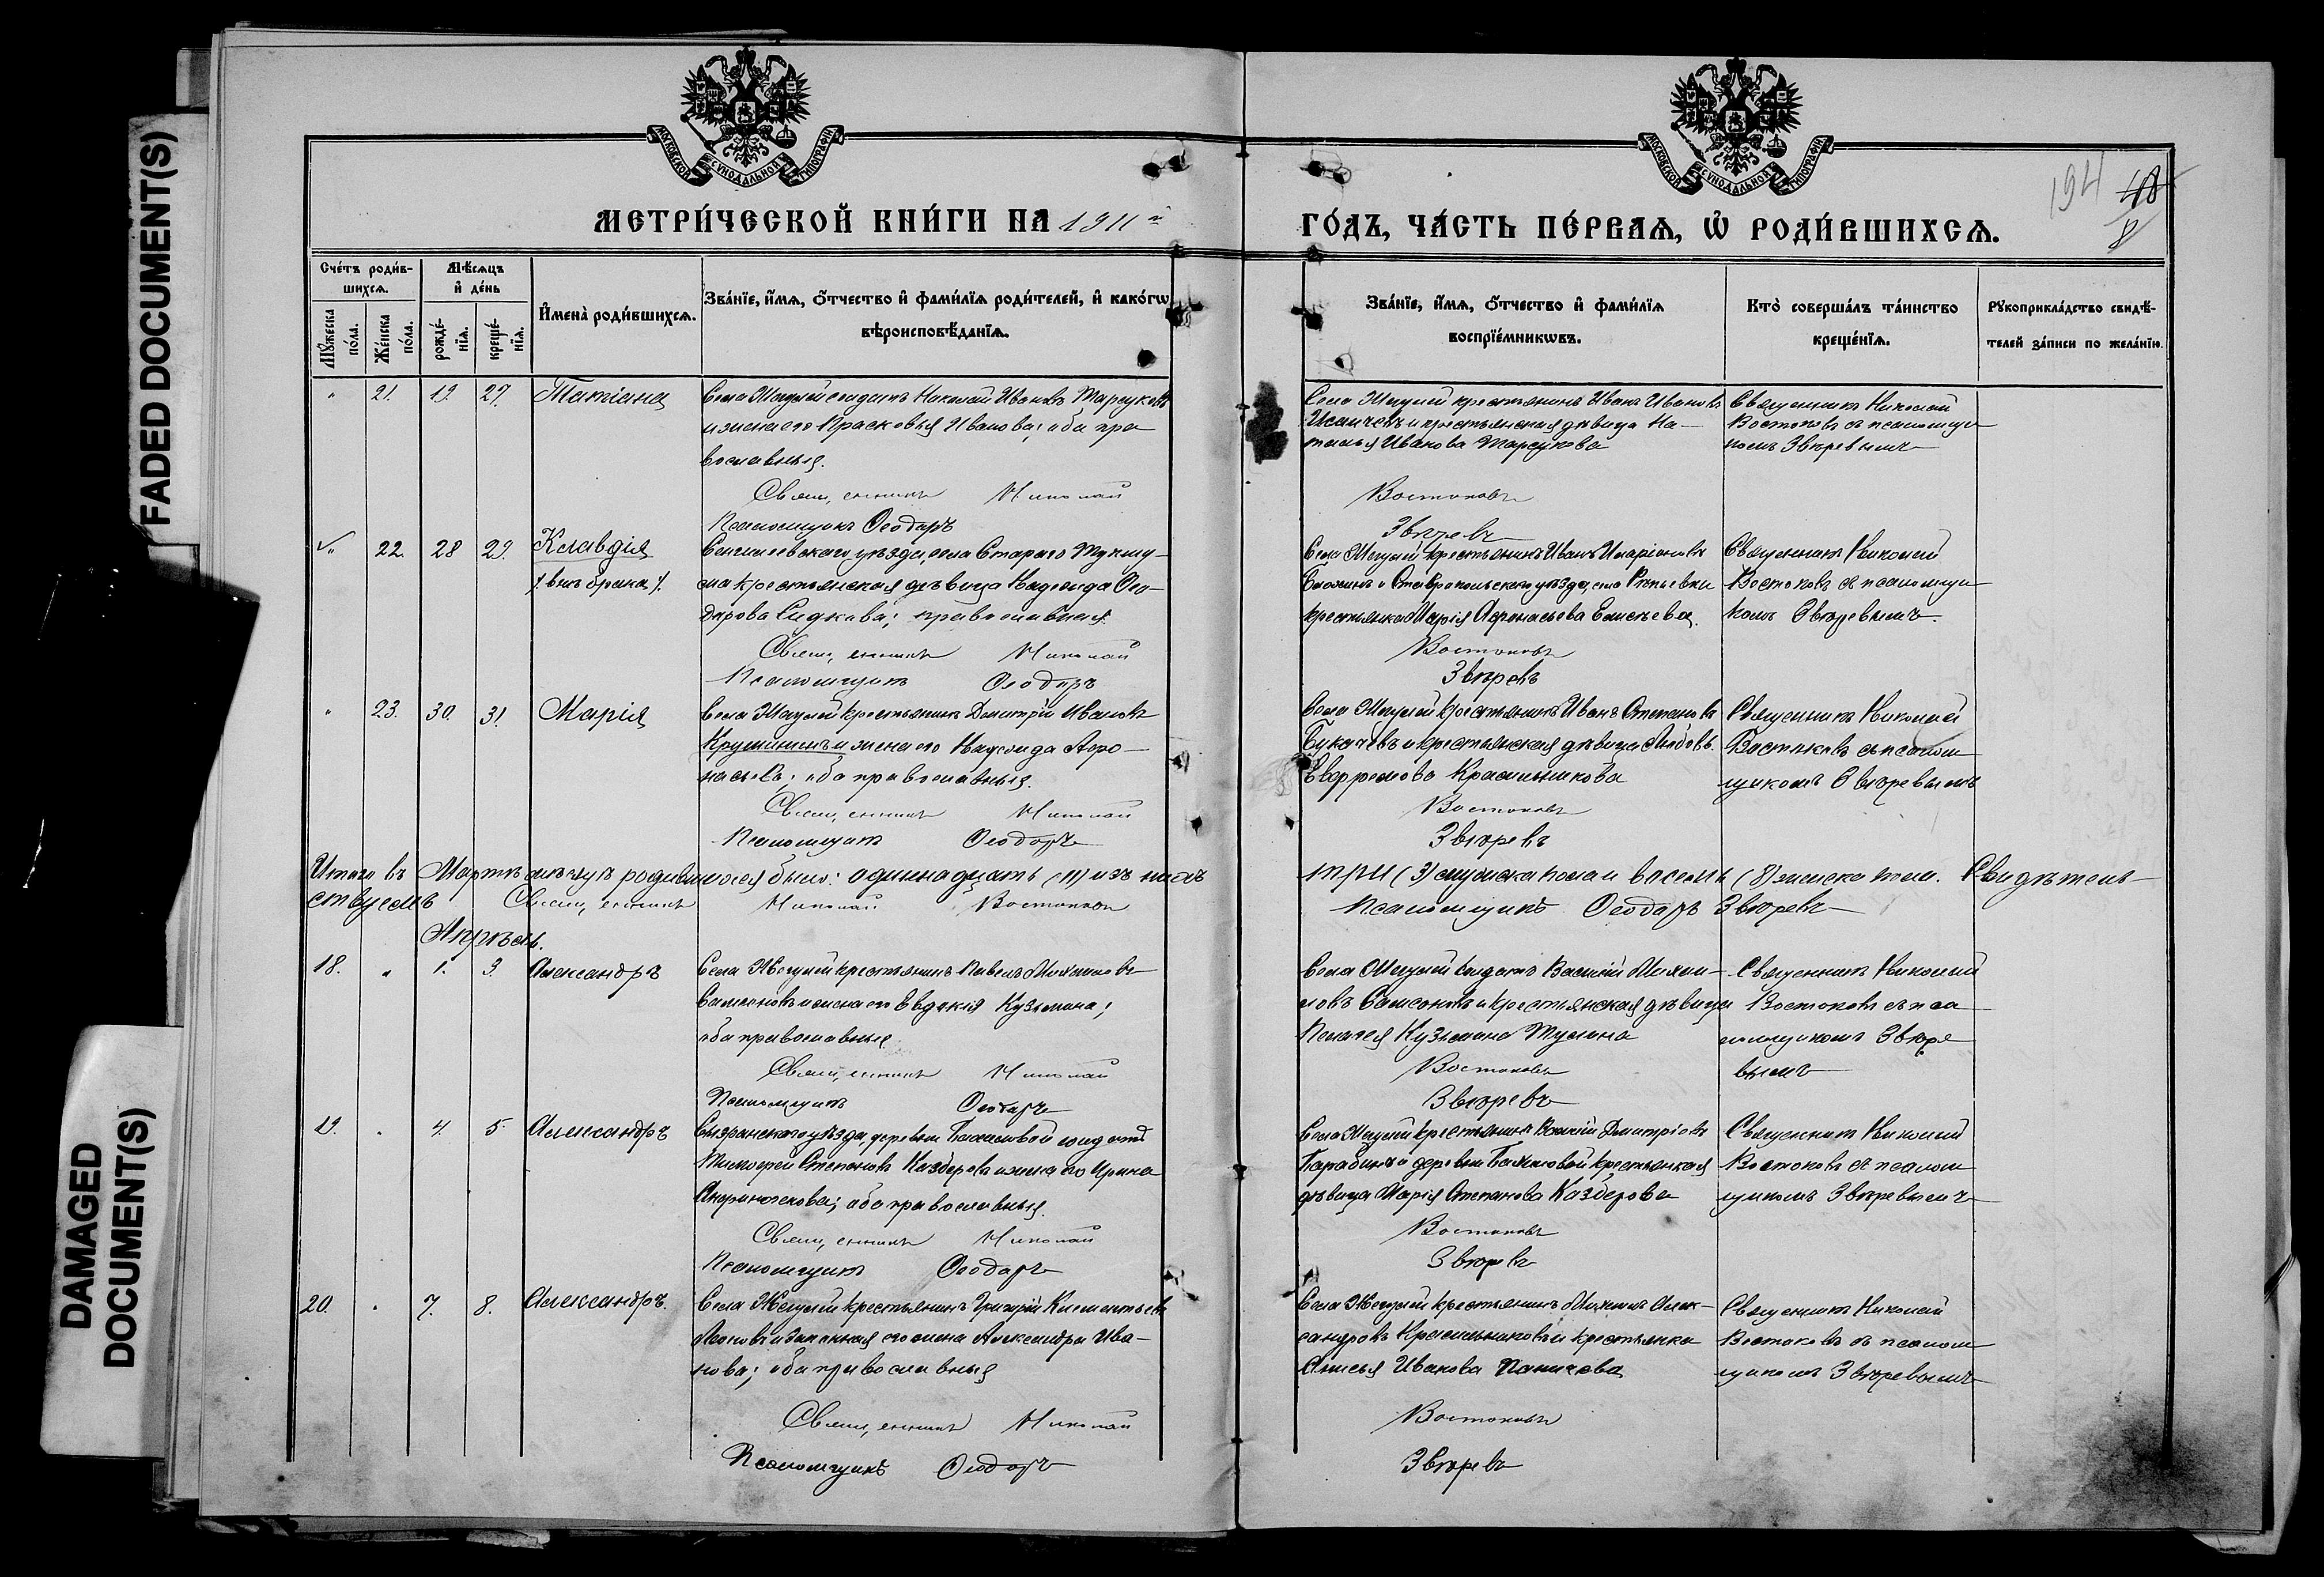 FADED DOCUMENT(S)
DAMAGED
DOCUMENT(S)
МОСКОВСКОЙ СѴНОДАЛЬНОЙ ТИПОГРАФІИ
МОСКОВСКОЙ СѴНОДАЛЬНОЙ ТИПОГРАФІИ
194 48
МЕТРИ́ЧЕСКОЙ КНИ́ГИ НА 1911й
ГО́ДЪ, ЧА́СТЬ ПЕ́РВАѦ, Ѡ҆ РОДИ́ВШИХСѦ.
Счéтъ роди́в-
шихсѧ.
Мꙋ́жеска по́ла.
Же́нска по́ла.
Мѣ́сѧцъ
и҆ де́нь
рожде́-
нїѧ.
креще́-
нїѧ.
И҆мена̀ роди́вшихсѧ.
Зва́нїе, и҆́мѧ, ѻ҆́тчество и҆ фами́лїѧ роди́телей, и҆ како́гѡ
вѣроисповѣ́данїѧ.
Зва́нїе, и҆́мѧ, ѻ҆́тчество и҆ фами́лїѧ
воспрїе́мникѡвъ.
Кто̀ соверша́лъ та́инство
креще́нїѧ.
Рꙋкоприкла́дство свидѣ́-
телей за́писи по жела́нїю.
" 21. 19 27. Татіана
Села Жигулей солдатъ Николай Ивановъ
и жена его Прасковья Иванова; оба пра
вославныя.
Священникъ Николай
Псаломщикъ Ѳеодоръ
Села Жигулей крестьянинъ Иванъ Ивановъ
и крестьянская дѣвица На-
талья Иванова
Востоковъ
Звѣревъ
Священникъ Николай
Востоковъ съ псаломщи
комъ Звѣревымъ
" 22. 28 29. Клавдія
/внѣ брака/.
Сенгилеевскаго уѣзда, села Стараго
крестьянская дѣвица Надежда Ѳео-
дорова; православная.
Священникъ Николай
Псаломщикъ Ѳеодоръ
Села Жигулей крестьянинъ Иванъ Иларіоновъ
и Ставропольскаго уѣзда, села
крестьянка Марія Аѳанасьева Елисѣева
Востоковъ
Звѣревъ
Священникъ Николай
Востоковъ съ псаломщи
комъ Звѣревымъ
" 23. 30. 31. Марія
Села Жигулей крестьянинъ Димитрій Ивановъ
Крушининъ и жена его Надежда Аѳо-
насьева; оба православныя.
Священникъ Николай
Псаломщикъ Ѳеодоръ
Села Жигулей крестьянинъ Иванъ Степановъ
и крестьянская дѣвица Любовь
Красильникова
Востоковъ
Звѣревъ
Священникъ Николай
Востоковъ съ псалом
щикомъ Звѣревымъ
Итого въ Мартѣ мѣсяцѣ родившихся было: одиннадцать (11) изъ нихъ три (3) мужска пола и восемь (8) женска пола. Свидѣтель-
ствуемъ Священникъ Николай Востоковъ Псаломщикъ Ѳеодоръ Звѣревъ
Апрѣль.
18. " 1. 3. Александръ
Села Жигулей крестьянинъ Павелъ Михайловъ
Самсоновъ и жена его Евдокія Кузьмина;
оба православныя
Священникъ Николай
Псаломщикъ Ѳеодоръ
Села Жигулей солдатъ Василій Михай-
ловъ Самсоновъ и крестьянская дѣвица
Пелагея Кузьмина
Востоковъ
Звѣревъ
Священникъ Николай
Востоковъ съ пса
ломщикомъ Звѣре
вымъ
19. " 4. 5. Александръ
Сызранскаго уѣзда, деревни Бахиловой солдатъ
Тимоѳей Степановъ и жена его Ирина
оба православныя.
Священникъ Николай
Псаломщикъ Ѳеодоръ
Села Жигулей крестьянинъ Василій Димитріевъ
и деревни Бахиловой крестьянская
дѣвица Марія Степанова
Востоковъ
Звѣревъ
Священникъ Николай
Востоковъ съ псалом
щикомъ Звѣревымъ
20. " 7. 8. Александръ.
Села Жигулей крестьянинъ Григорій Климентьевъ
и законная его жена Александра Ива-
нова; оба православныя
Священникъ Николай
Псаломщикъ Ѳеодоръ
Села Жигулей крестьянинъ Михаилъ Алек-
сандровъ Красильниковъ и крестьянка
Анисья Иванова
Востоковъ
Звѣревъ
Священникъ Николай
Востоковъ съ псалом
щикомъ Звѣревымъ